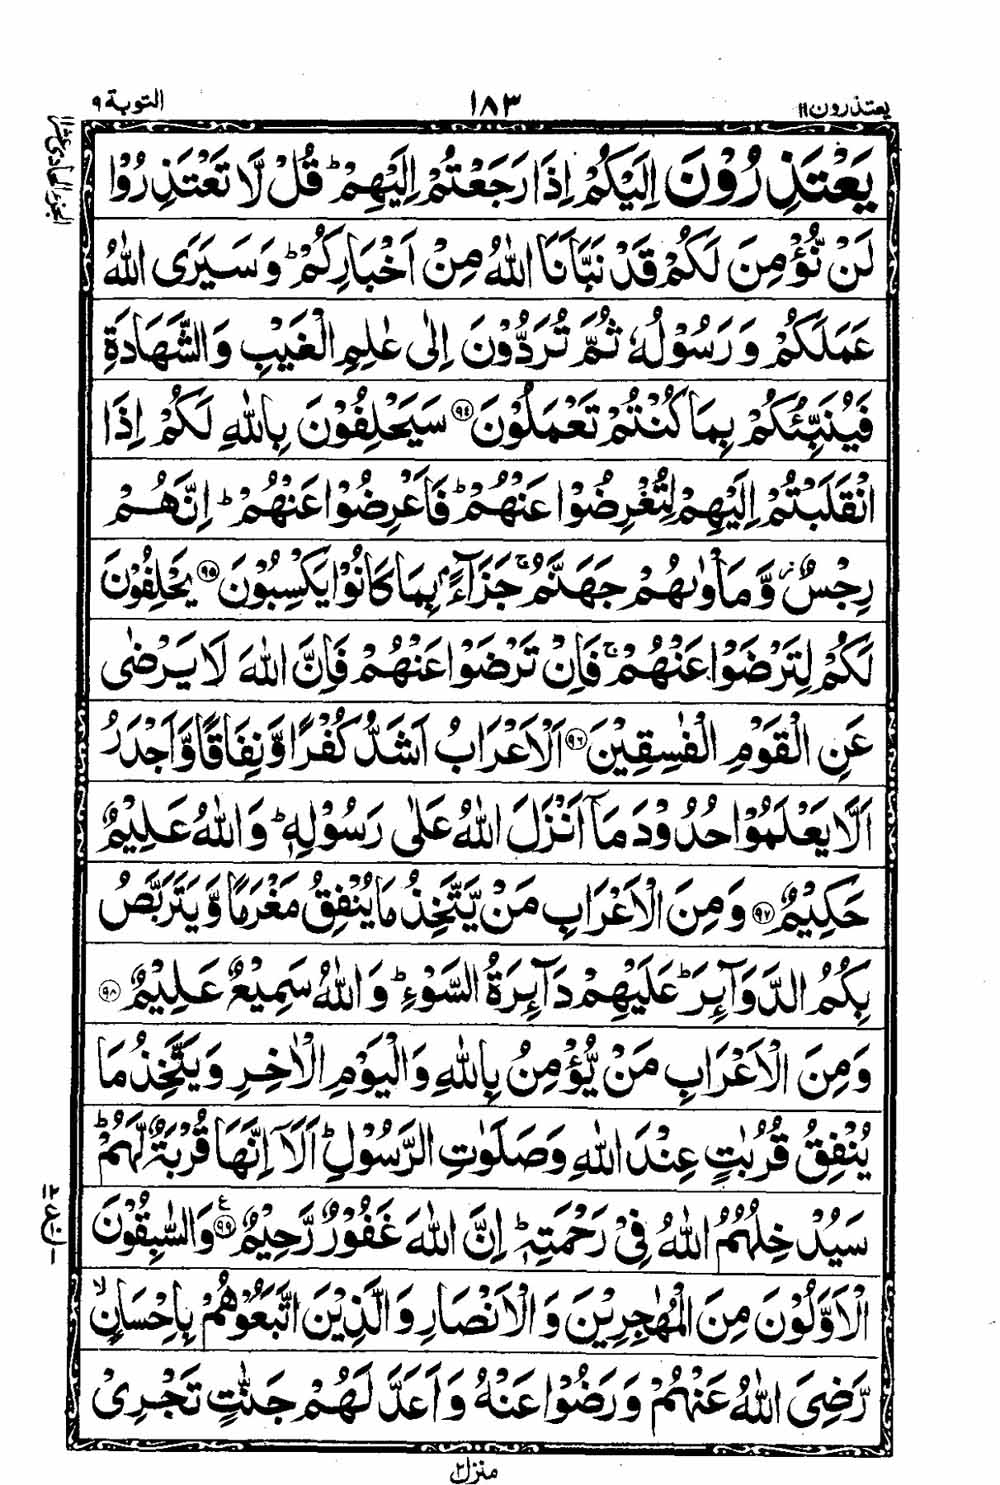 يعتذرون ١١
١٨٣
التوبة ٩
يَعْتَذِرُوْنَ اِلَيْكُمْ اِذَا رَجَعْتُمْ اِلَيْهِمْ ؕ قُلْ لَّا تَعْتَذِرُوْا
لَنْ نُّؤْمِنَ لَكُمْ قَدْ نَبَّاَنَا اللّٰهُ مِنْ اَخْبَارِكُمْ ؕ وَسَيَرَى اللّٰهُ
عَمَلَكُمْ وَرَسُوْلُهٗ ثُمَّ تُرَدُّوْنَ اِلٰى عٰلِمِ الْغَيْبِ وَالشَّهَادَةِ
فَيُنَبِّئُكُمْ بِمَا كُنْتُمْ تَعْمَلُوْنَ ۝٩٤ سَيَحْلِفُوْنَ بِاللّٰهِ لَكُمْ اِذَا
انْقَلَبْتُمْ اِلَيْهِمْ لِتُعْرِضُوْا عَنْهُمْ ؕ فَاَعْرِضُوْا عَنْهُمْ ؕ اِنَّهُمْ
رِجْسٌ ز وَّمَاْوٰىهُمْ جَهَنَّمُ ۚ جَزَآءًۢ بِمَا كَانُوْا يَكْسِبُوْنَ ۝٩٥ يَحْلِفُوْنَ
لَكُمْ لِتَرْضَوْا عَنْهُمْ ۚ فَاِنْ تَرْضَوْا عَنْهُمْ فَاِنَّ اللّٰهَ لَا يَرْضٰى
عَنِ الْقَوْمِ الْفٰسِقِيْنَ ۝٩٦ اَلْاَعْرَابُ اَشَدُّ كُفْرًا وَّنِفَاقًا وَّاَجْدَرُ
اَلَّا يَعْلَمُوْا حُدُوْدَ مَاۤ اَنْزَلَ اللّٰهُ عَلٰى رَسُوْلِهٖ ؕ وَاللّٰهُ عَلِيْمٌ
حَكِيْمٌ ۝٩٧ وَمِنَ الْاَعْرَابِ مَنْ يَّتَّخِذُ مَا يُنْفِقُ مَغْرَمًا وَّيَتَرَبَّصُ
بِكُمُ الدَّوَآئِرَ ؕ عَلَيْهِمْ دَآئِرَةُ السَّوْءِ ؕ وَاللّٰهُ سَمِيْعٌ عَلِيْمٌ ۝٩٨
وَمِنَ الْاَعْرَابِ مَنْ يُّؤْمِنُ بِاللّٰهِ وَالْيَوْمِ الْاٰخِرِ وَيَتَّخِذُ مَا
يُنْفِقُ قُرُبٰتٍ عِنْدَ اللّٰهِ وَصَلَوٰتِ الرَّسُوْلِ ؕ اَلَاۤ اِنَّهَا قُرْبَةٌ لَّهُمْ ؕ
سَيُدْخِلُهُمُ اللّٰهُ فِيْ رَحْمَتِهٖ ؕ اِنَّ اللّٰهَ غَفُوْرٌ رَّحِيْمٌ ۝٩٩ ع وَالسّٰبِقُوْنَ
الْاَوَّلُوْنَ مِنَ الْمُهٰجِرِيْنَ وَالْاَنْصَارِ وَالَّذِيْنَ اتَّبَعُوْهُمْ بِاِحْسَانٍ ۙ
رَّضِيَ اللّٰهُ عَنْهُمْ وَرَضُوْا عَنْهُ وَاَعَدَّ لَهُمْ جَنّٰتٍ تَجْرِيْ
الجزء الحادي عشر
منزل ٢